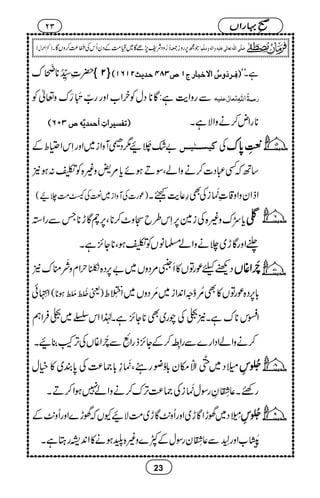 صبحِ بہاراں
۲۳
فرمانِ مصطفٰے صلی اللہ تعالٰی علیہ والہ وسلم: جو مجھ پر روزِ جمعہ دُرود شریف پڑھے گا میں قیامت کے دن اُس کی شفاعت کروں گا۔ (کنزالعمال)
ہے۔'' (فِردَوسُ الاخبار ج ۱ ص ۴۸۳ حدیث ۱۶۱۲) {۲} حضرتِ سیِّدُنا ضَحّاک
رحمۃُ اللہِ تعالٰی علیہ سے روایت ہے: گانا دل کو خراب اور ربّ تَبارَکَ وَتعالٰی کو
ناراض کرنے والا ہے۔ (تفسیراتِ احمدیّہ ص ۶۰۳)
نعتِ پاک کی کیسٹیں بے شک چلائیے مگر دھیمی آواز میں اور اِس احتیاط کے
ساتھ کہ کسی عبادت کرنے والے، سوتے ہوئے یا مریض وغیرہ کو تکلیف نہ ہو نیز
اذان و اوقاتِ نماز کی بھی رعایت کیجئے۔ (عورت کی آواز میں نعت کی کیسٹ مت چلائیے)
گلی یا سڑک وغیرہ کی زمین پر اِس طرح سجاوٹ کرنا، پرچم گاڑنا جس سے راستہ
چلنے اور گاڑی چلانے والے مسلمانوں کو تکلیف ہو، ناجائز ہے۔
چَراغاں دیکھنے کیلئے عورتوں کا اجنبی مردوں میں بے پردہ نکلنا حرام و شرمناک نیز
باپردہ عورتوں کا بھی مُرَوَّجہ انداز میں مردوں میں اِختِلاط (یعنی خَلْط مَلْط ہونا) انتہائی
افسوس ناک ہے۔ نیز بجلی کی چوری بھی ناجائز ہے۔ لہٰذا اس سلسلے میں بجلی فراہم
کرنے والے ادارے سے رابطہ کرکے جائز ذرائع سے چراغاں کی ترکیب بنائیے۔
جُلوسِ میلاد میں حتَّی الْاِمکان باوُضو رہئے، نمازِ باجماعت کی پابندی کا خیال
رکھئے۔ عاشِقانِ رسول نماز کی جماعت ترک کرنے والے نہیں ہوا کرتے۔
جُلوسِ میلاد میں گھوڑا گاڑی اور اُونٹ گاڑی مت لائیے کیوں کہ گھوڑے اور اُونٹ کے
پیشاب اور لید سے عاشِقانِ رسول کے کپڑے وغیرہ پلید ہونے کا اندیشہ رہتا ہے۔
23